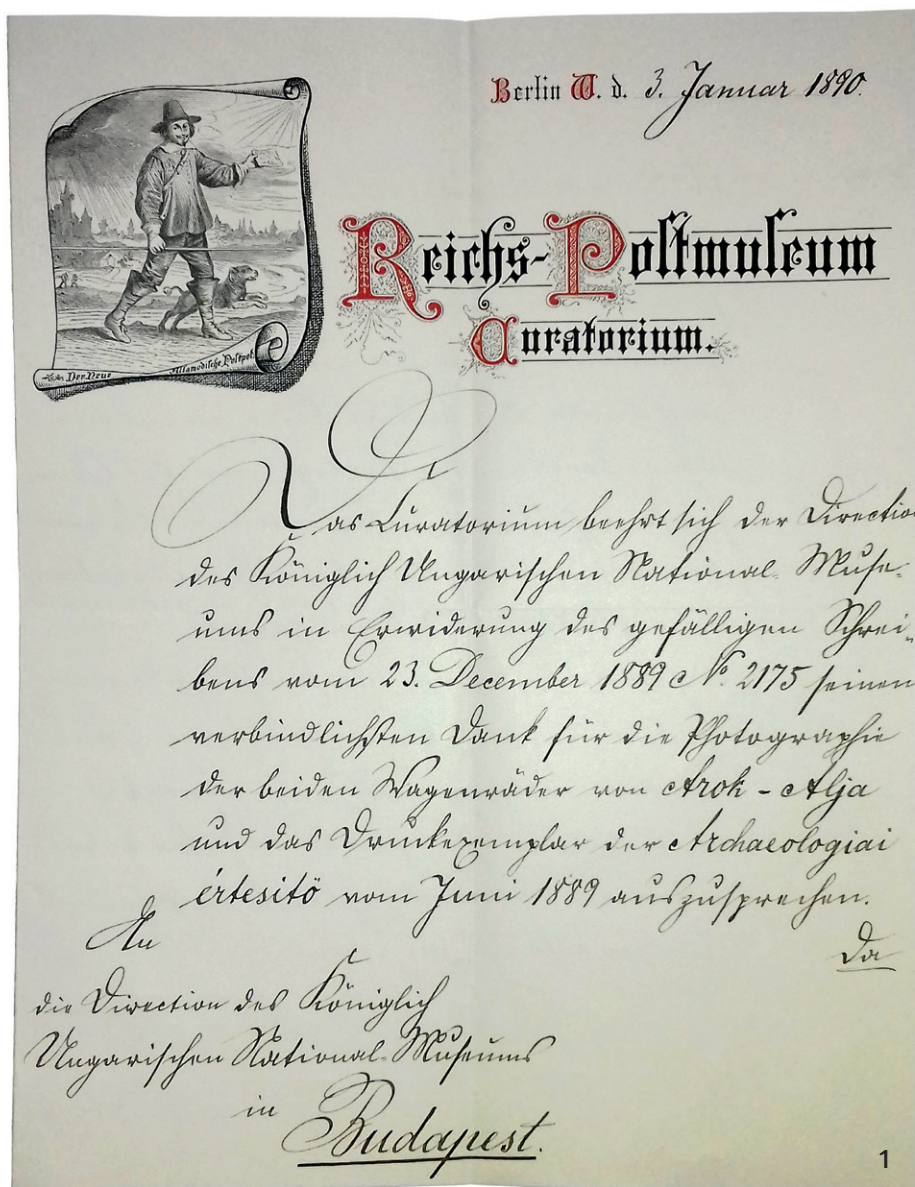 Berlin W. d. 3. Januar 1890.
Reichs-Postmuseum
Curatorium.
Der Neue Allamodische Postpot.
Das Curatorium beehrt sich der Direction
des Königlich Ungarischen National-Muse-
ums in Erwiderung des gefälligen Schrei-
bens vom 23. December 1889 No. 2175 seinen
verbindlichsten Dank für die Photographie
der beiden Wagenräder von Arok-Alja
und das Druckexemplar der Archaeologiai
értesitö vom Juni 1889 auszusprechen.
Da
An
die Direction des Königlich
Ungarischen National-Museums
in
Budapest.
1